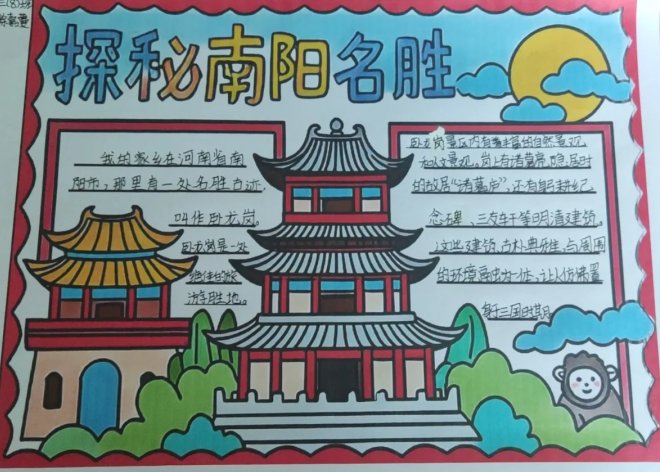 三(8)班
探秘南阳名胜
我的家乡在河南省南
阳市，那里有一处名胜古迹，
叫作卧龙岗。
卧龙岗是一处
绝佳的旅
游胜地。
卧龙岗景区内有着丰富的自然景观
和人文景观。岗上有诸葛亮隐居时
的故居“诸葛庐”，还有躬耕纪
念碑、三友轩等明清建筑。
这些建筑，古朴典雅，与周围
的环境融为一体，让人仿佛置
身于三国时期。